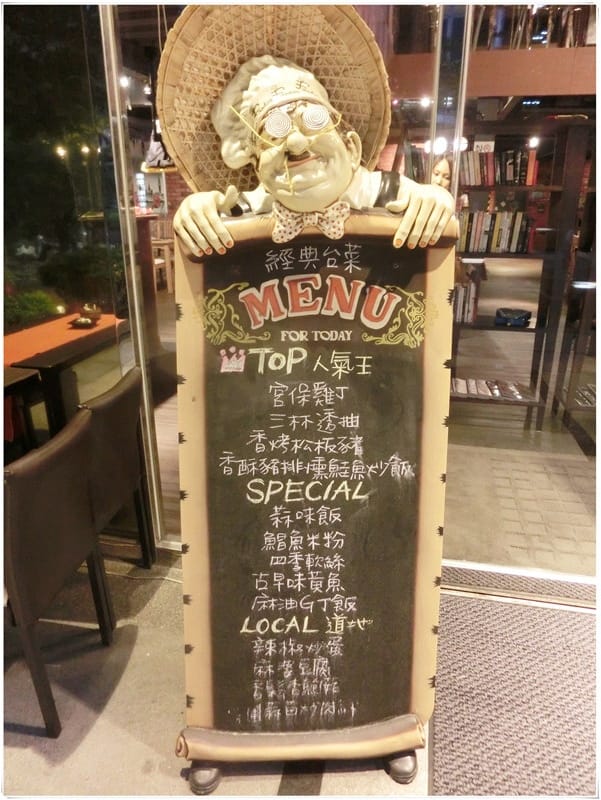 經典台菜
MENU
FOR TODAY
TOP 人氣王
宮保雞丁
三杯透抽
香烤松板豬
香酥豬排燻鮭魚炒飯
SPECIAL
蒜味飯
鯧魚米粉
四季軟絲
古早味黃魚
麻油G丁飯
LOCAL 道地
辣椒炒蛋
麻醬豆腐